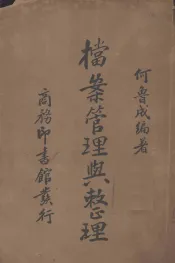 何魯成編著
檔案管理與整理
商務印書館發行